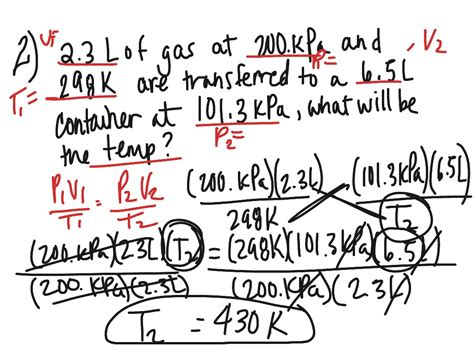 2) V₁ 2.3 L of gas at 200. kPa and
P₁= , V₂
T₁= 298K are transferred to a 6.5L
container at 101.3 kPa, what will be
P₂=
the temp?
P₁V₁/T₁ = P₂V₂/T₂
(200. kPa)(2.3L)/298K (101.3 kPa)(6.5L)/T₂
(200. kPa)(2.3L)(T₂)/(200. kPa)(2.3L) = (298K)(101.3 kPa)(6.5L)/(200. kPa)(2.3L)
T₂ = 430 K